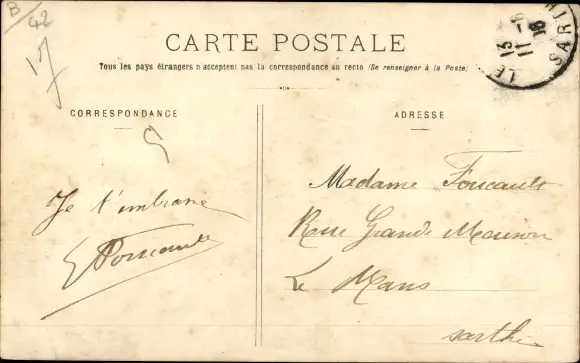 B/42
17
CARTE POSTALE
Tous les pays étrangers n'acceptent pas la correspondance au recto (Se renseigner à la Poste)
CORRESPONDANCE
ADRESSE
Je t'embrasse
Foucault
Madame Foucault
Rue Grande Maison
Le Mans
Sarthe
LE
13
11
SARTHE